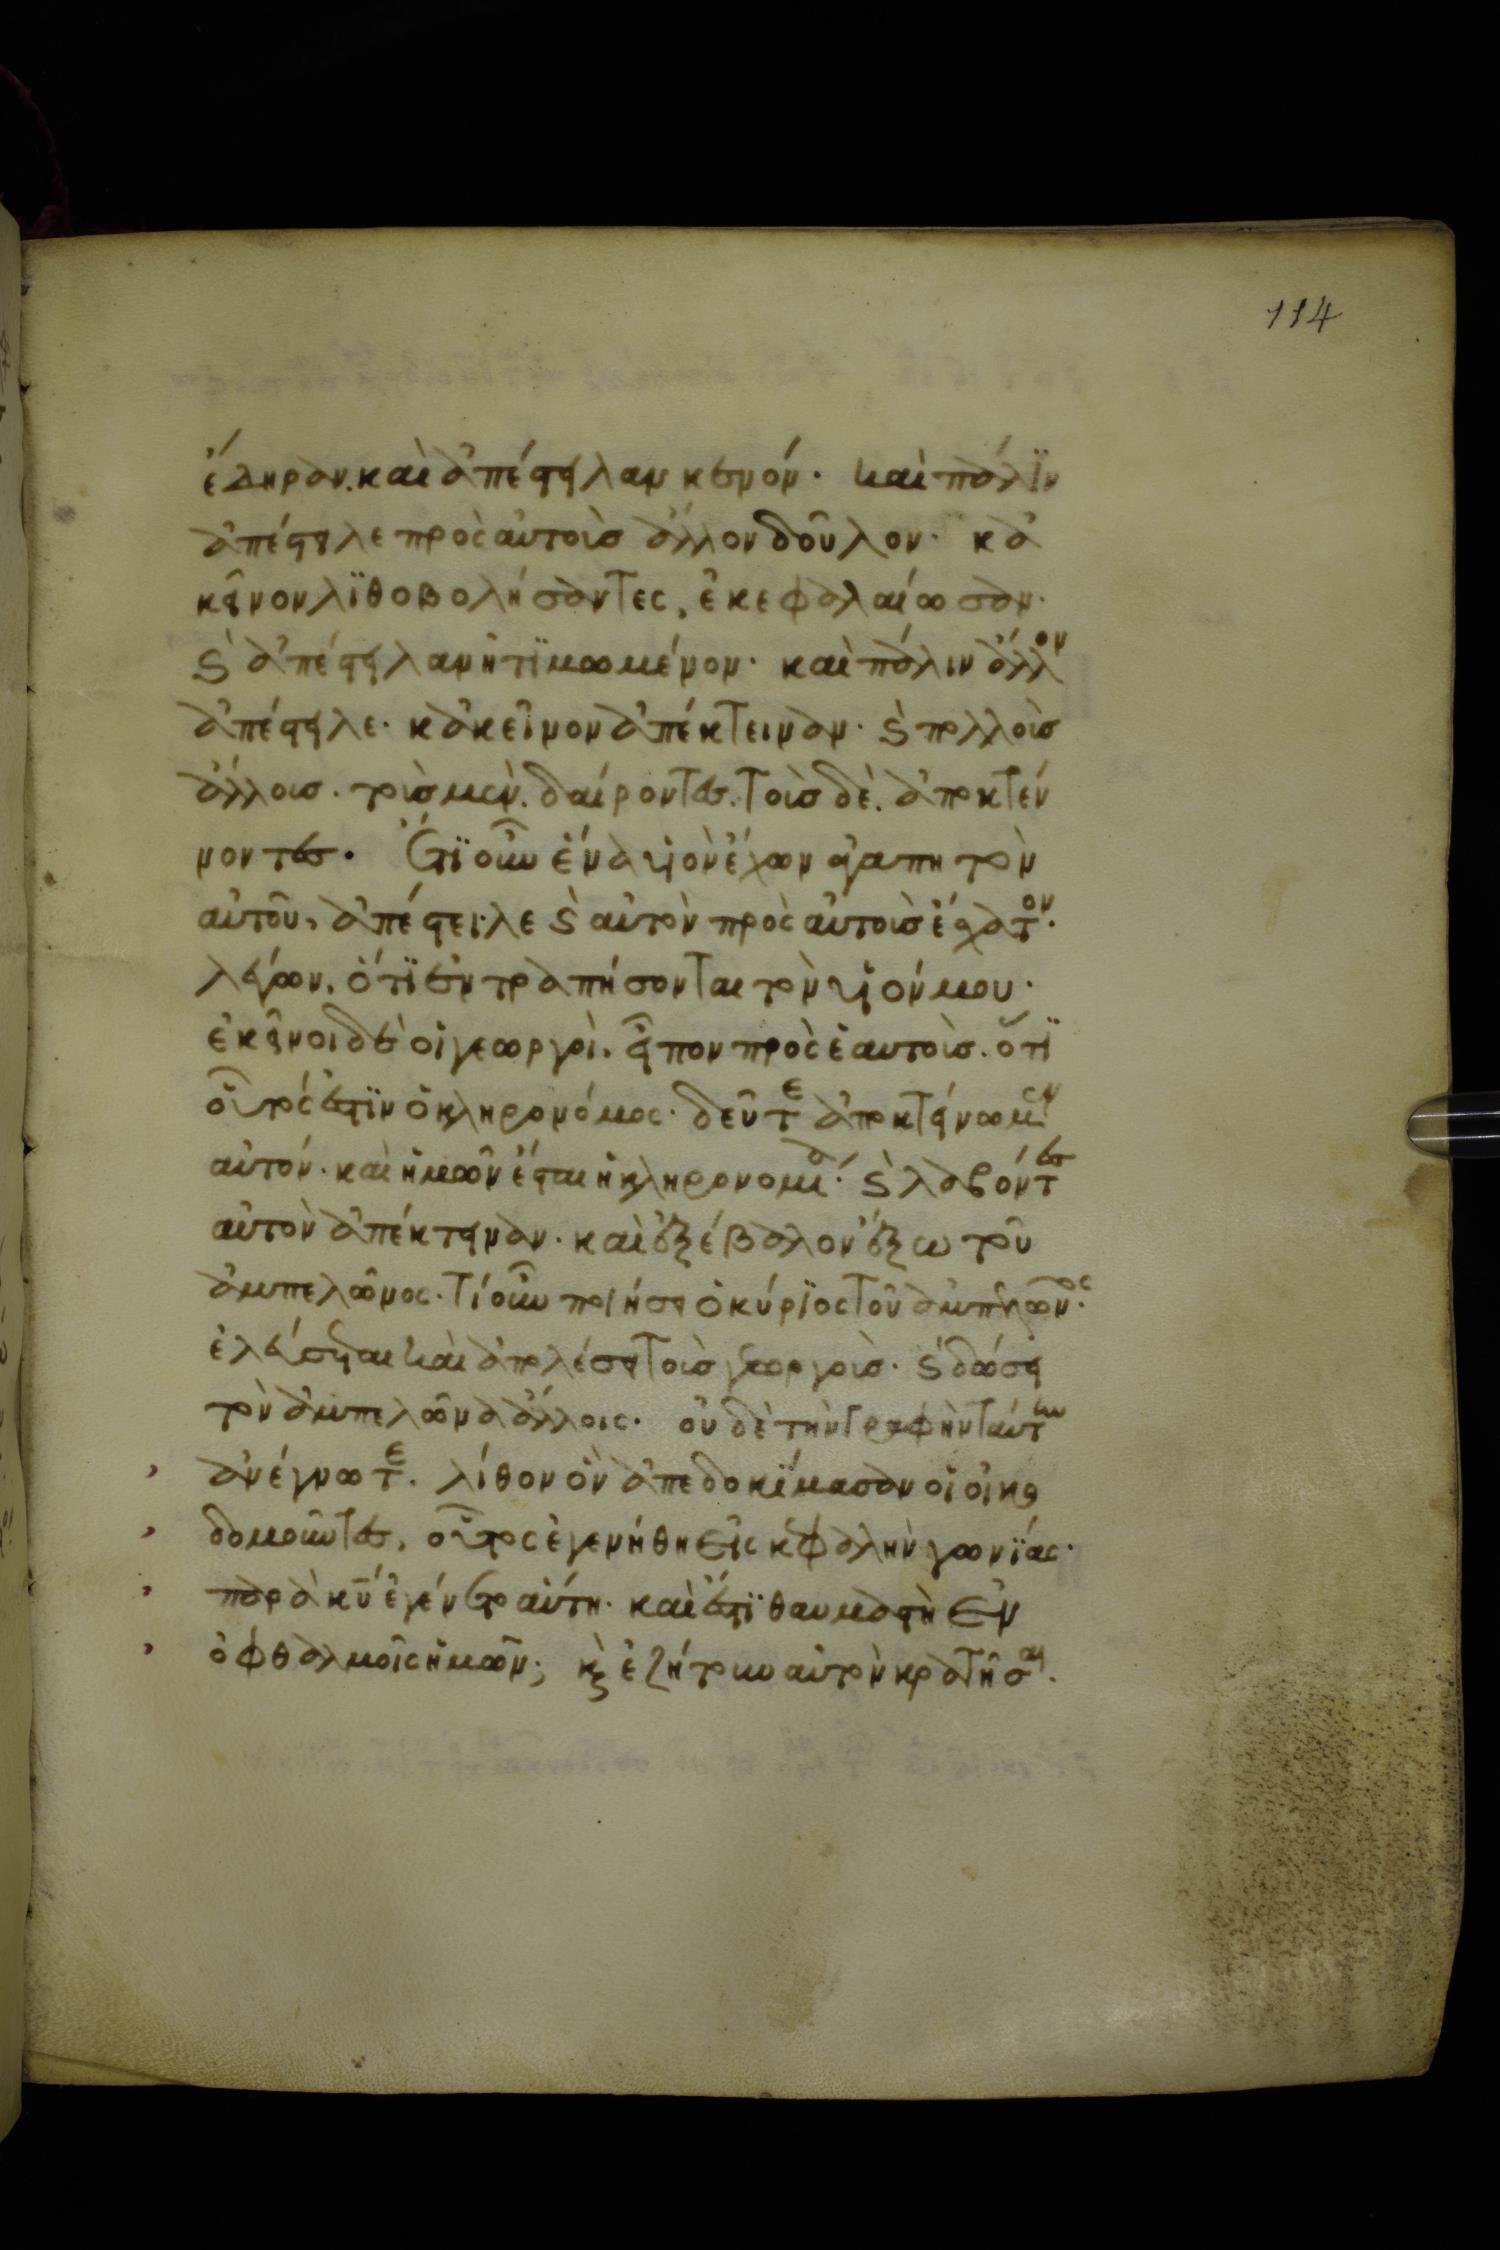 114
ἔδηραν. καὶ ἀπέστειλαν κενόν· καὶ πάλϊν
ἀπέστειλε πρὸς αὐτοὺσ ἄλλον δοῦλον· κἀ
κεῖνον λϊθοβολήσαντες, ἐκεφαλαίωσαν·
καὶ ἀπέστειλαν ἠτϊμωμένον· καὶ πάλιν ἄλλον
ἀπέστειλε· κἀκεῖνον ἀπέκτειναν· καὶ πολλοὺσ
ἄλλουσ· τοὺσ μὲν. δαίροντεσ. τοὺσ δὲ. ἀποκτέν
νοντεσ· Ἔτϊ οὖν ἕνα υἱὸν ἔχων ἀγαπητὸν
αὐτοῦ, ἀπέστειλε καὶ αὐτὸν πρὸς αὐτοὺσ ἔσχατον·
λέγων, ὅτϊ ἐντραπήσονται τὸν υἱόν μου·
ἐκεῖνοι δὲ οἱ γεωργοὶ. εἶπον πρὸς ἑαυτοὺσ. ὅτϊ
οὗτός ἐστϊν ὁ κληρονόμος· δεῦτε ἀποκτείνωμεν
αὐτόν· καὶ ἡμῶν ἔσται ἡ κληρονομία· καὶ λαβόντεσ
αὐτὸν ἀπέκτειναν· καὶ ἐξέβαλον ἔξω τοῦ
ἀμπελῶνος· τί οὖν ποιήσει ὁ κύρϊος τοῦ ἀμπελῶνος·
ἐλεύσεται καὶ ἀπολέσει τοὺσ γεωργοὺσ· καὶ δώσει
τὸν ἀμπελῶνα ἄλλοις· οὐδὲ τὴν γραφὴν ταύτην
ἀνέγνωτε· λίθον ὃν ἀπεδοκϊμασαν οἱ οἰκο
δομοῦντεσ, οὗτος ἐγενήθη εἰς κεφαλὴν γωνϊάς·
παρὰ κυ ἐγένετο αὕτη· καὶ ἔστϊ θαυμαστὴ ἐν
ὀφθαλμοῖς ἡμῶν; καὶ ἐζήτουν αὐτὸν κρατῆσαι·